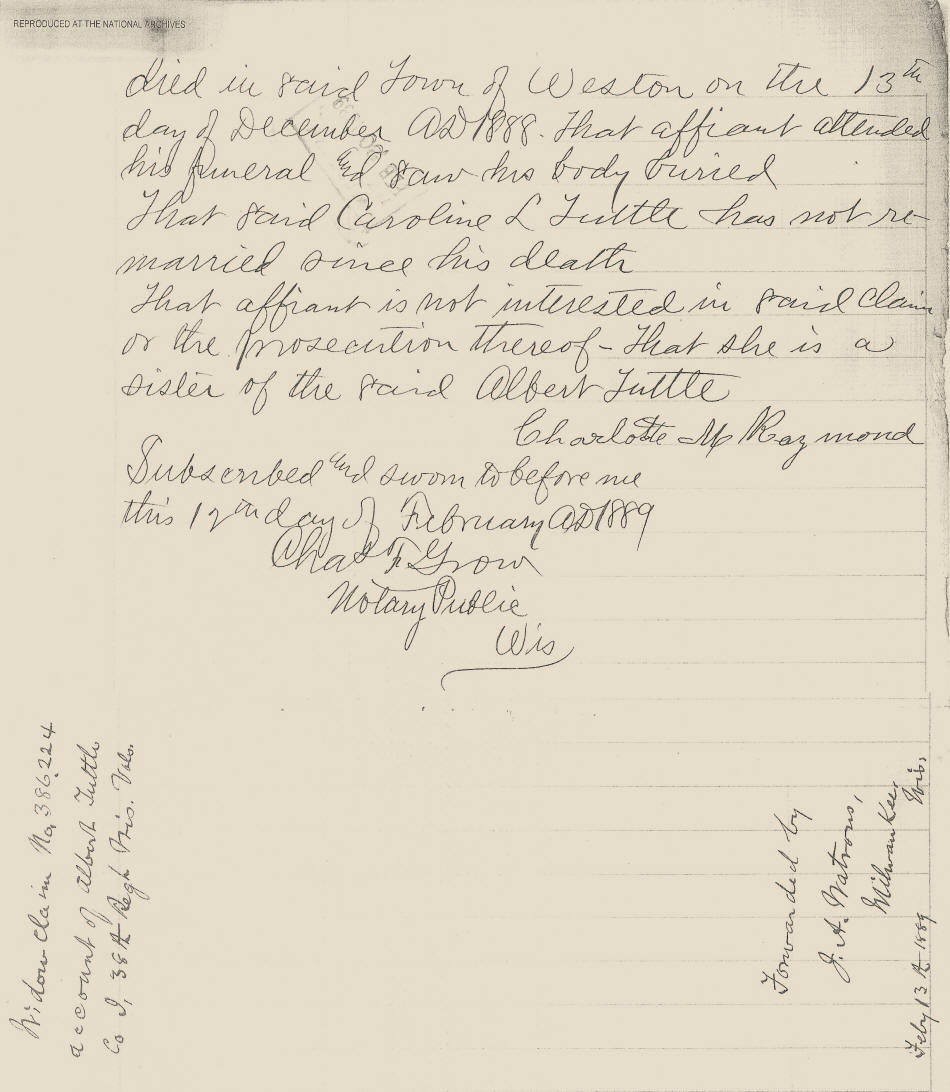 REPRODUCED AT THE NATIONAL ARCHIVES
died in said Town of Weston on the 13th
day of December AD 1888. That affiant attended
his funeral and saw his body buried
That said Caroline L Tuttle has not re-
married since his death
That affiant is not interested in said claim
or the prosecution thereof - That she is a
sister of the said Albert Tuttle
Charlotte M Raymond
Subscribed and sworn to before me
this 12th day of February AD 1889
Chas F. Grow
Notary Public
Wis
Widow Claim No, 386224
account of Albert Tuttle
Co I, 38th Regt Wis. Vols.
Forwarded by
J. A. Watrous,
Milwaukee,
Wis.
Feby 13th 1889